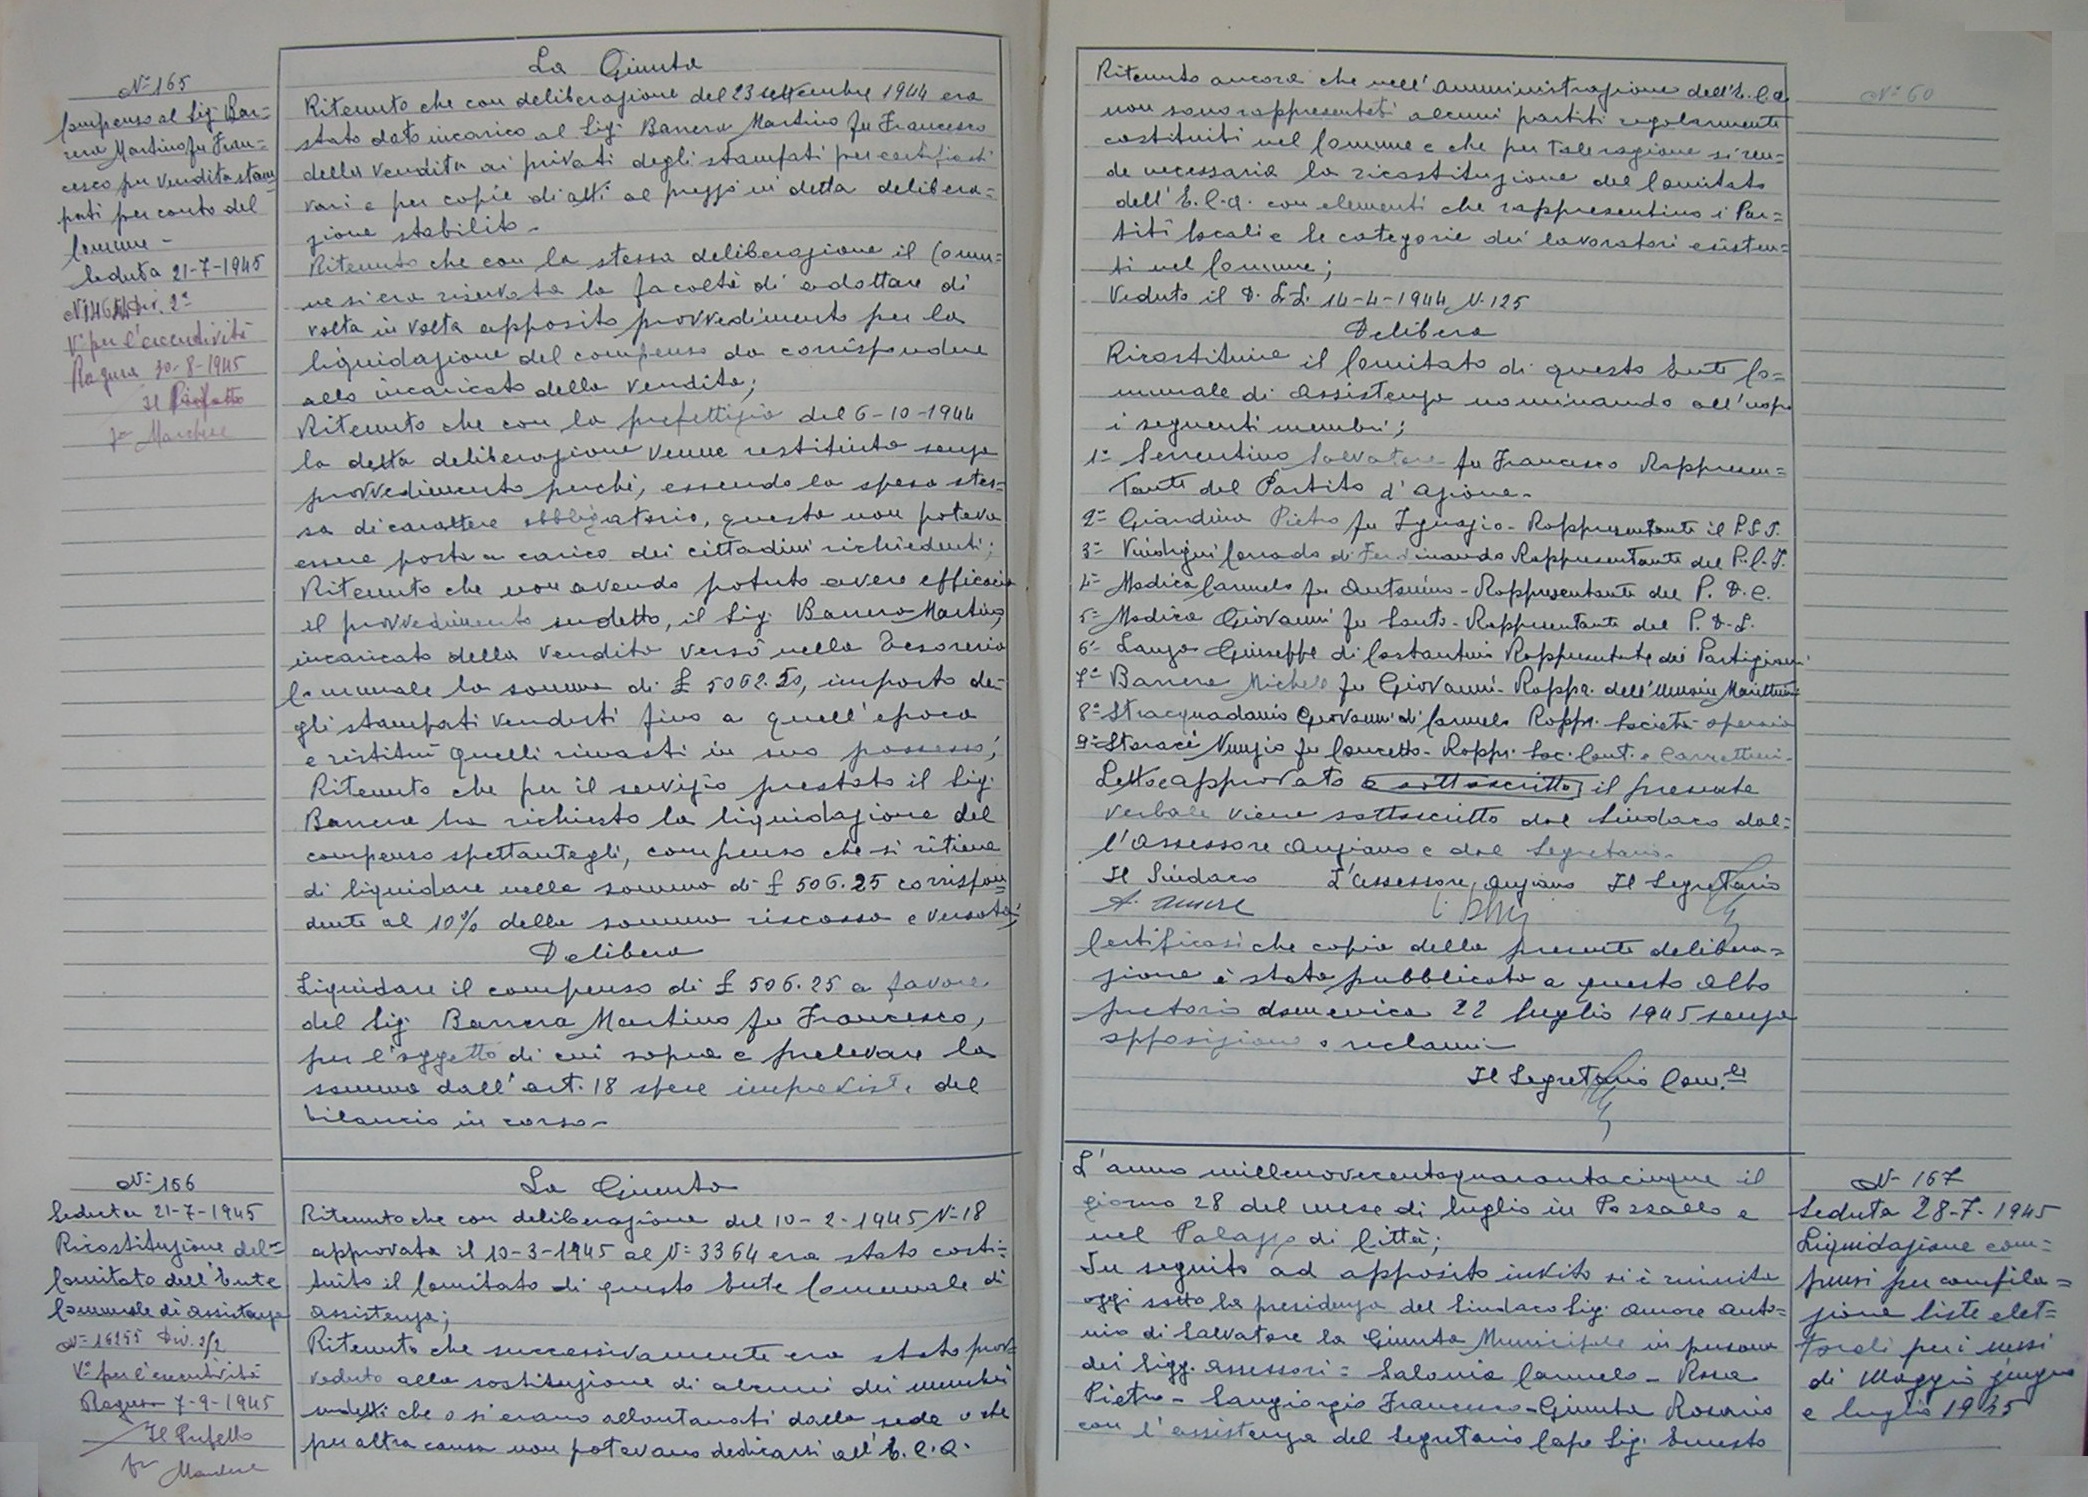 N° 165
Compenso al Sig. Bar=
rera Martino fu Fran=
cesco per vendita stam
pati per conto del
Comune -
Seduta 21-7-1945
Div. 2ª
V° per l'esecutività
Ragusa 30-8-1945
Il Prefetto
La Giunta
Ritenuto che con deliberazione del 23 settembre 1944 era
stato dato incarico al Sig. Barrera Martino fu Francesco
della vendita ai privati degli stampati per certificati
vari e per copie di atti al prezzo in detta delibera=
zione stabilito -
Ritenuto che con la stessa deliberazione il Comu=
ne si era riservata la facoltà di adottare di
volta in volta apposito provvedimento per la
liquidazione del compenso da corrispondere
allo incaricato della vendita;
Ritenuto che con la prefettizia del 6-10-1944
la detta deliberazione venne restituita senza
provvedimento perché, essendo la spesa stes=
sa di carattere obbligatorio, questa non poteva
essere posta a carico dei cittadini richiedenti;
Ritenuto che non avendo potuto avere efficacia
il provvedimento sudetto, il Sig. Barrera Martino,
incaricato della vendita versò nella Tesoreria
Comunale la somma di £ 5062.50, importo de=
gli stampati venduti fino a quell'epoca
e restituì quelli rimasti in suo possesso;
Ritenuto che per il servizio prestato il Sig.
Barrera ha richiesto la liquidazione del
compenso spettantegli, compenso che si ritiene
di liquidare nella somma di £ 506.25 corrispon=
dente al 10% della somma riscossa e versata;
Delibera
Liquidare il compenso di £ 506.25 a favore
del Sig. Barrera Martino fu Francesco,
per l'oggetto di cui sopra e prelevare la
somma dall'art. 18 spese impreviste del
bilancio in corso -
N° 166
Seduta 21-7-1945
Ricostituzione del=
Comitato dell'Ente
Comunale di assistenza
N° 16255 Div. 2/2
V° per l'esecutività
Ragusa 7-9-1945
Il Prefetto
La Giunta
Ritenuto che con deliberazione del 10-2-1945 N° 18
approvata il 10-3-1945 al N° 3364 era stato costi=
tuito il Comitato di questo Ente Comunale di
assistenza;
Ritenuto che successivamente era stato prov=
veduto alla sostituzione di alcuni dei membri
sudetti che o si erano allontanati dalla sede o che
per altra causa non potevano dedicarsi all'E.C.A.
N° 60
Ritenuto ancora che nell'Amministrazione dell'E.C.A.
non sono rappresentati alcuni partiti regolarmente
costituiti nel Comune e che per tale ragione si ren=
de necessaria la ricostituzione del Comitato
dell'E.C.A. con elementi che rappresentino i Par=
titi locali e le categorie dei lavoratori esisten=
ti nel Comune;
Veduto il D.L.L. 14-4-1944 N. 125
Delibera
Ricostituire il Comitato di questo Ente Co=
munale di Assistenza nominando all'uopo
i seguenti membri;
1° Serrentino Salvatore fu Francesco Rappresen=
tante del Partito d'Azione -
2° Giardina Pietro fu Ignazio - Rappresentante il P.S.I.
3° Corrado di Ferdinando Rappresentante del P.C.I.
4° Modica Carmelo fu Antonino - Rappresentante del P. D. C.
5° Modica Giovanni fu Santo - Rappresentante del P. D. L.
6° Giuseppe di Costantino Rappresentante dei Partigiani
7° Barrera Michele fu Giovanni - Rappr. dell'Unione Marittimi
8° Stracquadanio Giovanni di Carmelo Rappr. Società operaia
9° Storaci Nunzio fu Concetto - Rappr. Soc. Cont. e Carrettieri -
Letto e approvato e sottoscritto il presente
verbale viene sottoscritto dal Sindaco dal=
l'Assessore Anziano e dal Segretario -
Il Sindaco L'assessore Anziano Il Segretario
A. Amore
Certificasi che copia della presente delibera=
zione è stata pubblicata a questo Albo
pretorio domenica 22 luglio 1945 senza
opposizione o reclami -
Il Segretario Com.le
L'anno millenovecentoquarantacinque il
giorno 28 del mese di luglio in Pozzallo e
nel Palazzo di Città;
In seguito ad apposito invito si è riunita
oggi sotto la presidenza del Sindaco Sig. Amore Anto=
nio di Salvatore la Giunta Municipale in persona
dei Sigg. Assessori = Salonia Carmelo - Rosa
Pietro - Sangiorgio Francesco - Giunta Rosario
con l'assistenza del Segretario Capo Sig. Ernesto
N° 167
Seduta 28-7-1945
Liquidazione com=
pensi per compila=
zione liste elet=
torali per i mesi
di Maggio giugno
e luglio 1945